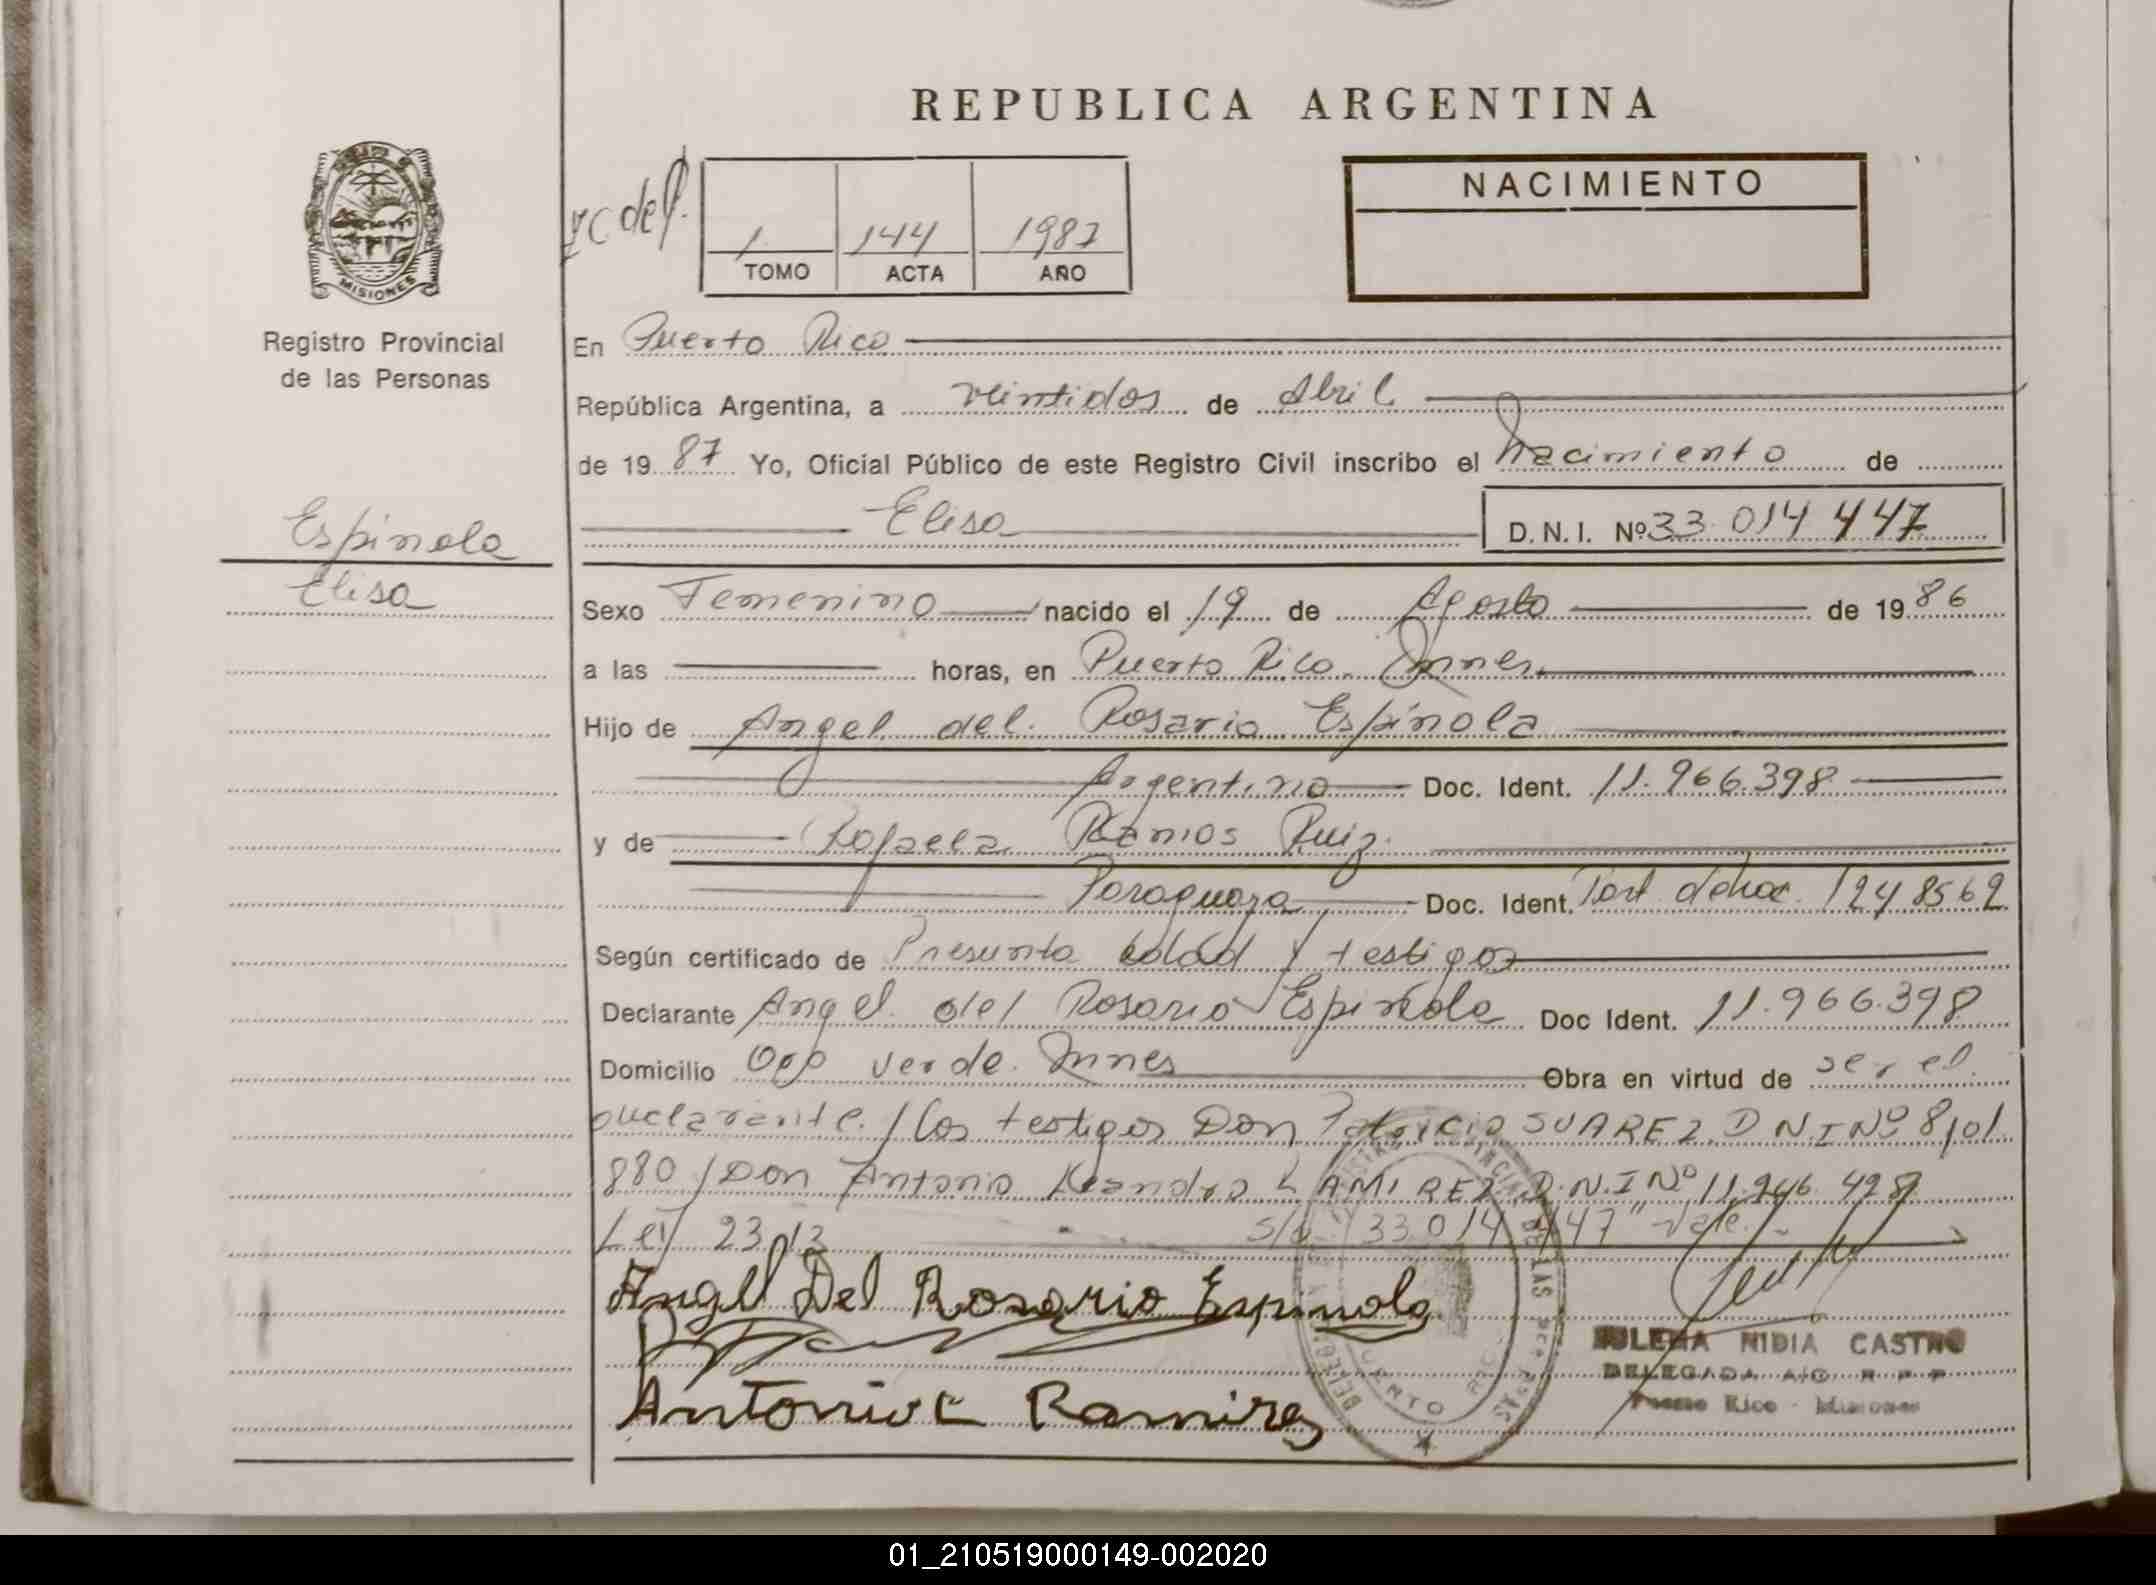 REPUBLICA ARGENTINA
NACIMIENTO
1 144 1987
TOMO ACTA AÑO
MISIONES
Registro Provincial
de las Personas
En Puerto Rico
República Argentina, a veintidos de Abril
de 1987 Yo, Oficial Público de este Registro Civil inscribo el Nacimiento de
Elisa D.N.I. Nº 33.014 447
Espinola
Elisa
Sexo Femenino nacido el 19 de Agosto de 1986
a las horas, en Puerto Rico. Mnes.
Hijo de Angel del Rosario Espínola
Argentino Doc. Ident. 11.966.398
y de Rafaela Ramos Ruiz.
Paraguaya Doc. Ident. 1248562
Según certificado de Presunta edad y testigos
Declarante Angel del Rosario Espinola Doc Ident. 11.966.398
Domicilio Oro verde. Mnes Obra en virtud de ser el
declarante. / los testigos Don Patricio SUAREZ D N I Nº 8101
880 / Don Antonio Leandro RAMIREZ D.N.I Nº 11.946 428
Ley s/b "33 014 447" Vale.-
Angel Del Rosario Espinola
Antonio L Ramirez
NIDIA CASTRO
DELEGADA A/C R P P
Puerto Rico - Misiones
01_210519000149-002020